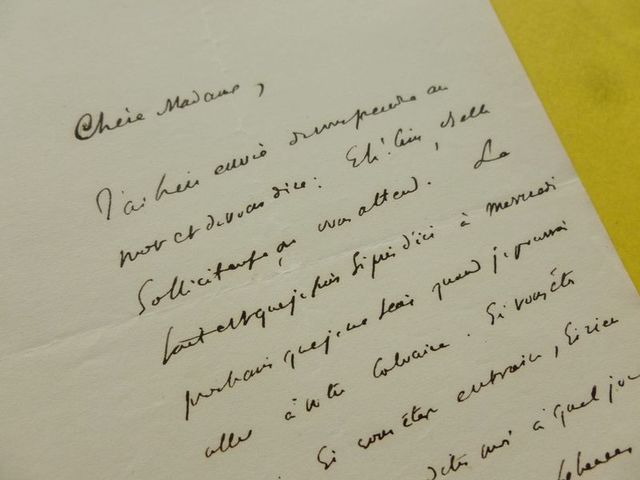 Chère Madame,
J'ai bien envie de vous prendre au
mot et de vous dire : Eh! bien, belle
Solliciteuse, on vous attend. Le
fait est que je suis si pris d'ici à mercredi
prochain que je ne sais quand je pourrai
aller à votre Calvaire. Si vous êtes
Si vous êtes en train, si rien
dites moi à quel jour